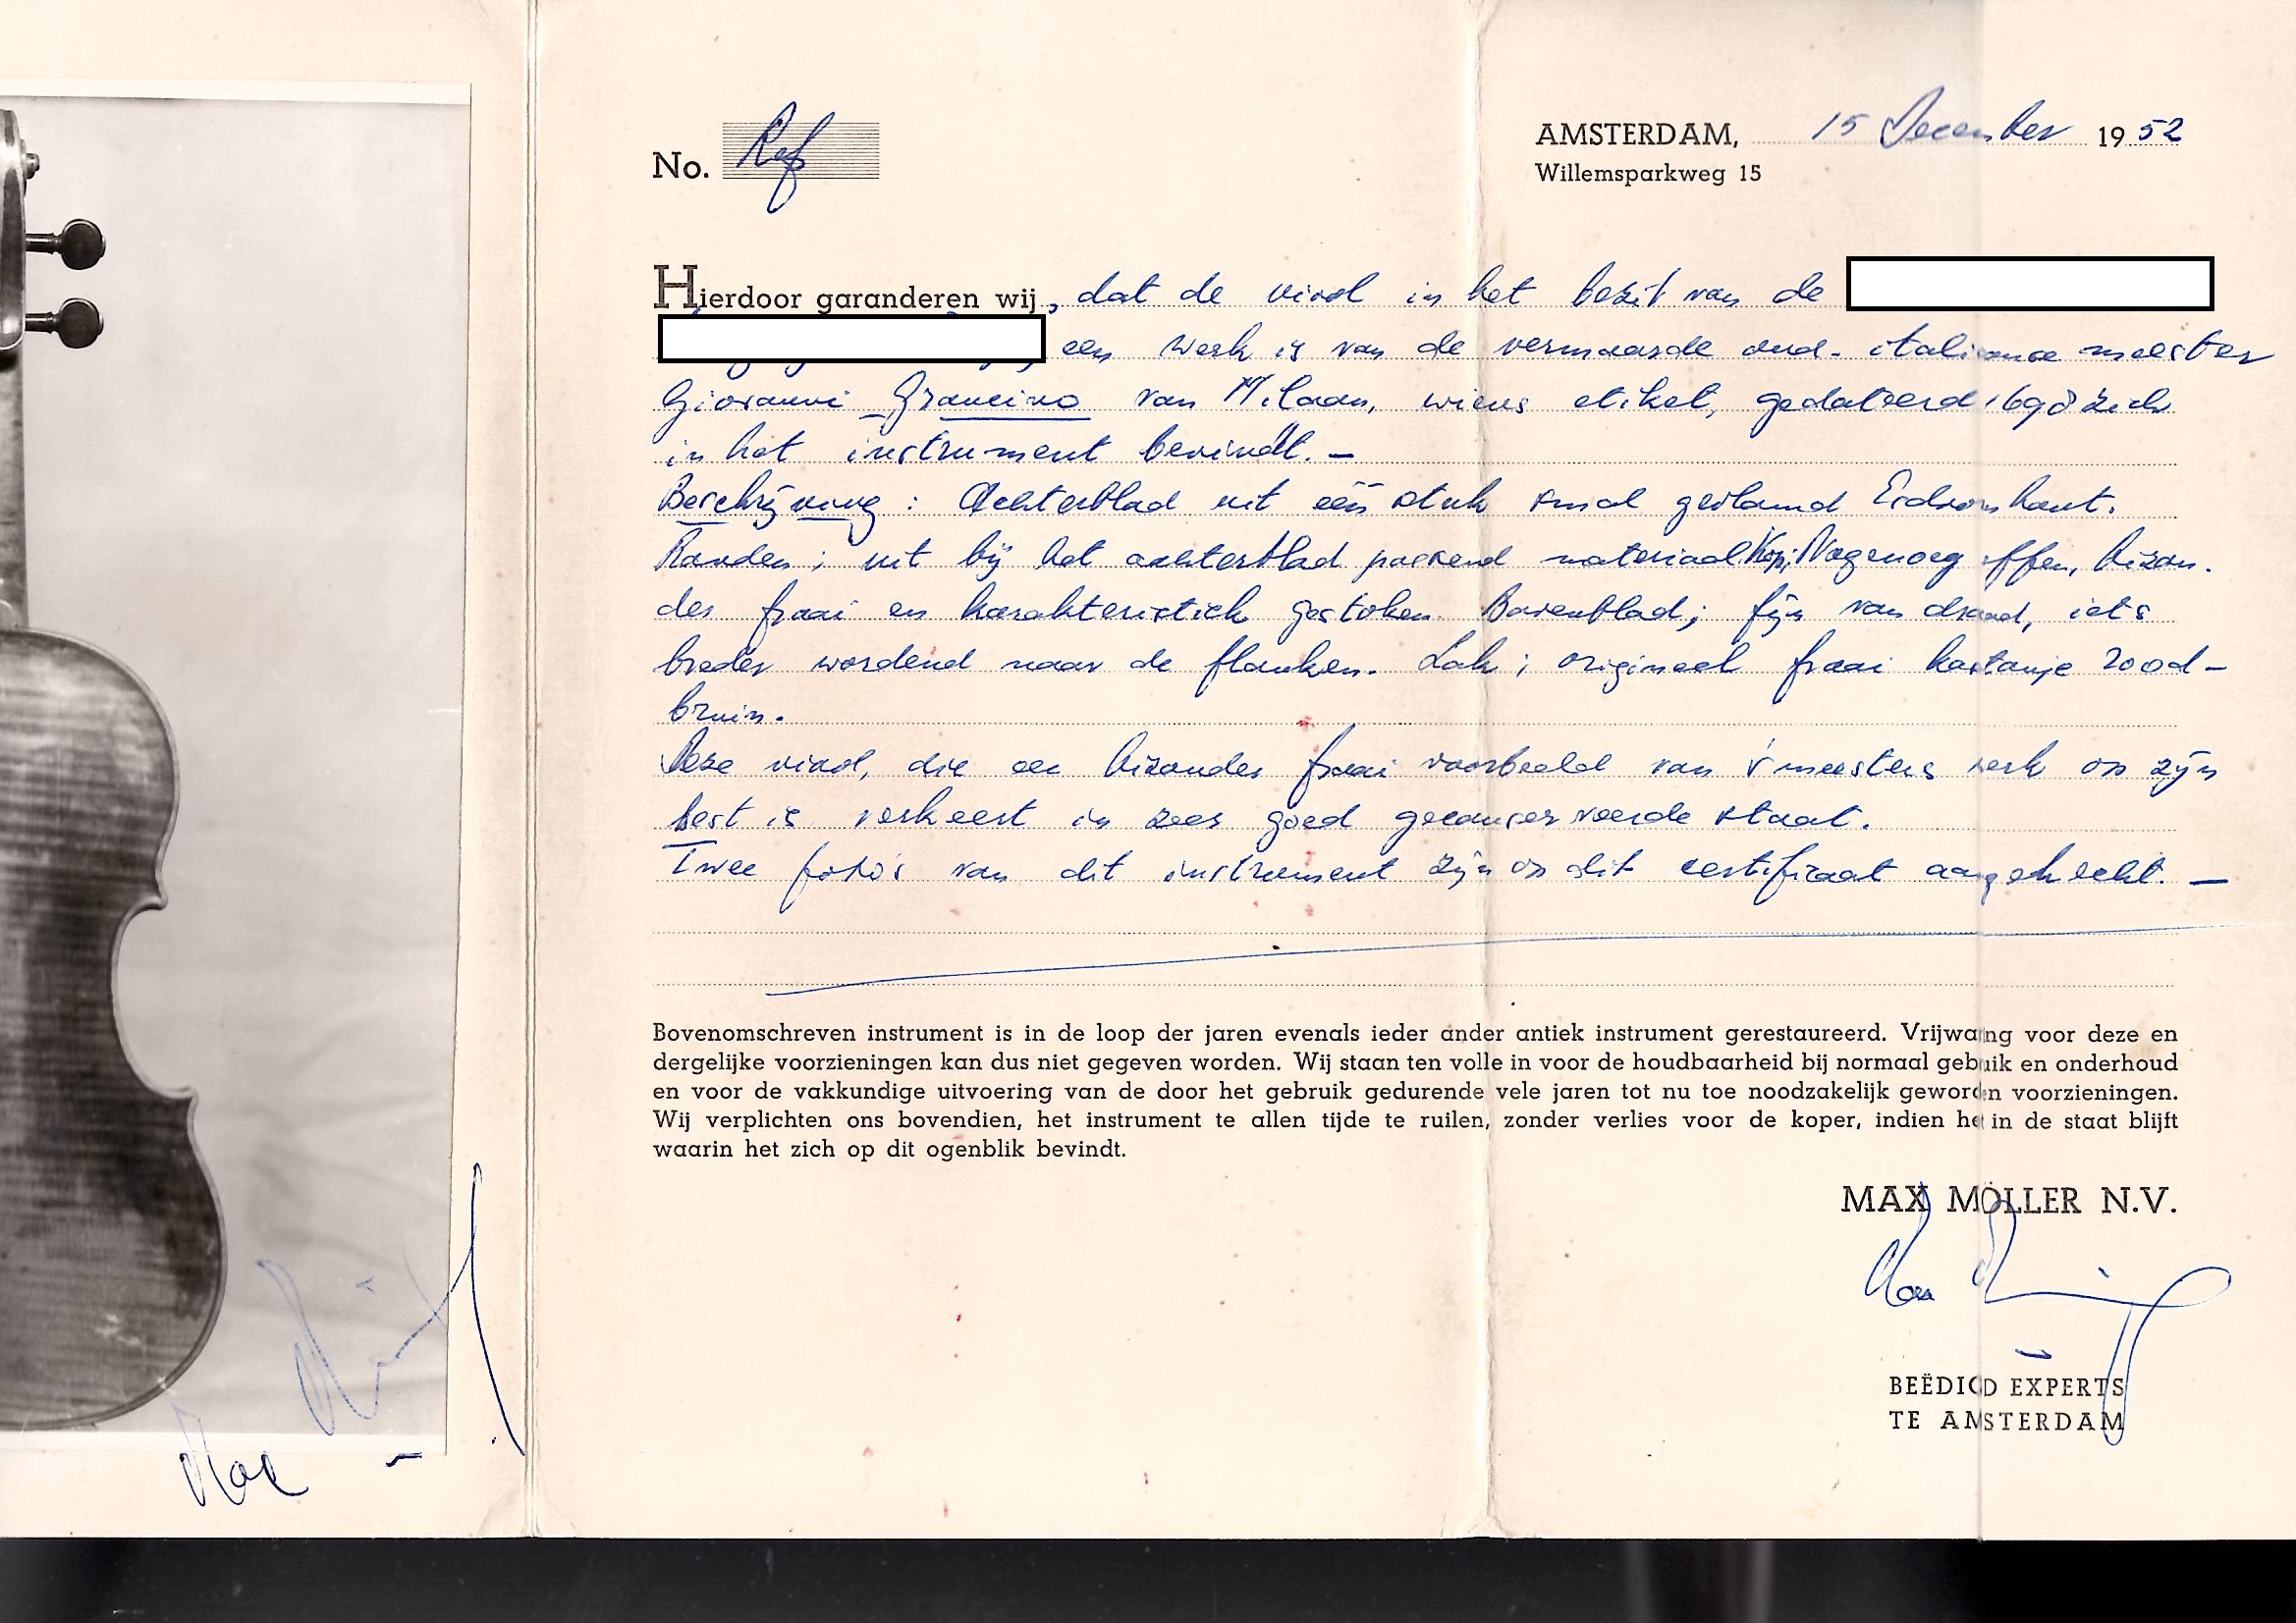 No. Ref
AMSTERDAM, 15 December 1952
Willemsparkweg 15
Hierdoor garanderen wij, dat de viool in het bezit van de
een werk is van de vermaarde oud-italiaanse meester
Giovanni Grancino van Milaan, wiens etiket, gedateerd 1698 zich
in het instrument bevindt. —
Beschrijving: Achterblad uit één stuk smal gevlamd Esdoornhout.
Randen; uit bij het achterblad passend materiaal. Kop; Nagenoeg effen, bizon-
der fraai en karakteristiek gestoken. Bovenblad; fijn van draad, iets
breder wordend naar de flanken. Lak; origineel fraai kastanje rood-
bruin.
Deze viool, die een bizonder fraai voorbeeld van 's meesters werk op zijn
best is verkeert in zeer goed geconserveerde staat.
Twee foto's van dit instrument zijn op dit certificaat aangehecht. —
Bovenomschreven instrument is in de loop der jaren evenals ieder ander antiek instrument gerestaureerd. Vrijwaring voor deze en
dergelijke voorzieningen kan dus niet gegeven worden. Wij staan ten volle in voor de houdbaarheid bij normaal gebruik en onderhoud
en voor de vakkundige uitvoering van de door het gebruik gedurende vele jaren tot nu toe noodzakelijk geworden voorzieningen.
Wij verplichten ons bovendien, het instrument te allen tijde te ruilen, zonder verlies voor de koper, indien het in de staat blijft
waarin het zich op dit ogenblik bevindt.
MAX MÖLLER N.V.
BEËDIGD EXPERTS
TE AMSTERDAM